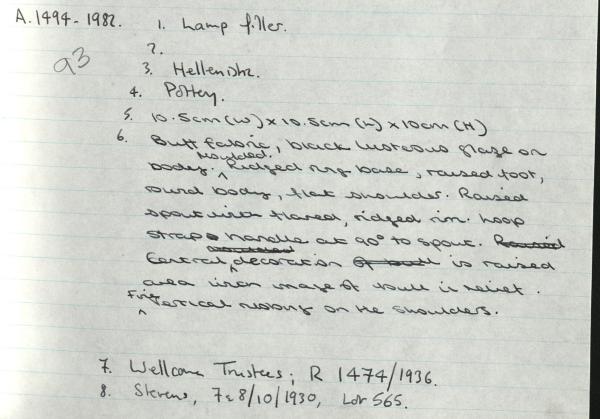 A.1494-1982. 1. Lamp filler.
2.
93
3. Hellenistic.
4. Pottery.
5. 10.5cm (W) x 10.5cm (L) x 10cm (H)
6. Buff fabric, black lustrous glaze on
body. Moulded. Ridged ring base, raised foot,
round body, flat shoulder. Raised
spout with flared, ridged rim. Hoop
strap handle at 90° to spout.
Central decoration is raised
area with image of bull in relief.
Fine vertical ribbing on the shoulders.
7. Wellcome Trustees; R 1474/1936.
8. Stevens, 7 & 8/10/1930, Lot 565.